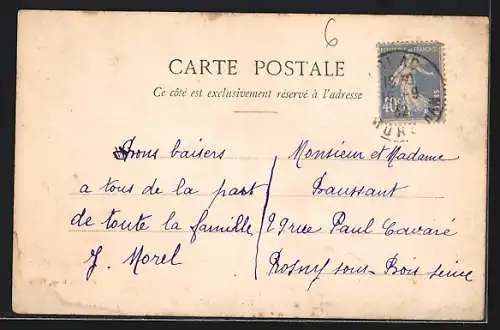 6
CARTE POSTALE
Ce côté est exclusivement réservé à l'adresse
Bons baisers
a tous de la part
de toute la famille
J. Morel
Monsieur et Madame
Baussant
29 rue Paul Cavaré
Rosny sous-Bois seine
40